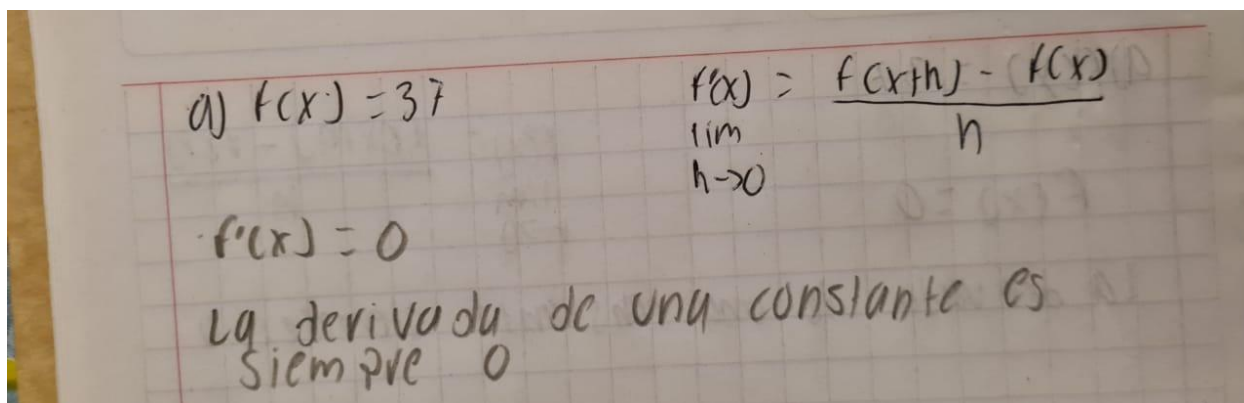 a) f(x) = 37
f'(x) = f(x+h) - f(x)
h
lim
h->0
f'(x) = 0
La derivada de una constante es
siempre 0